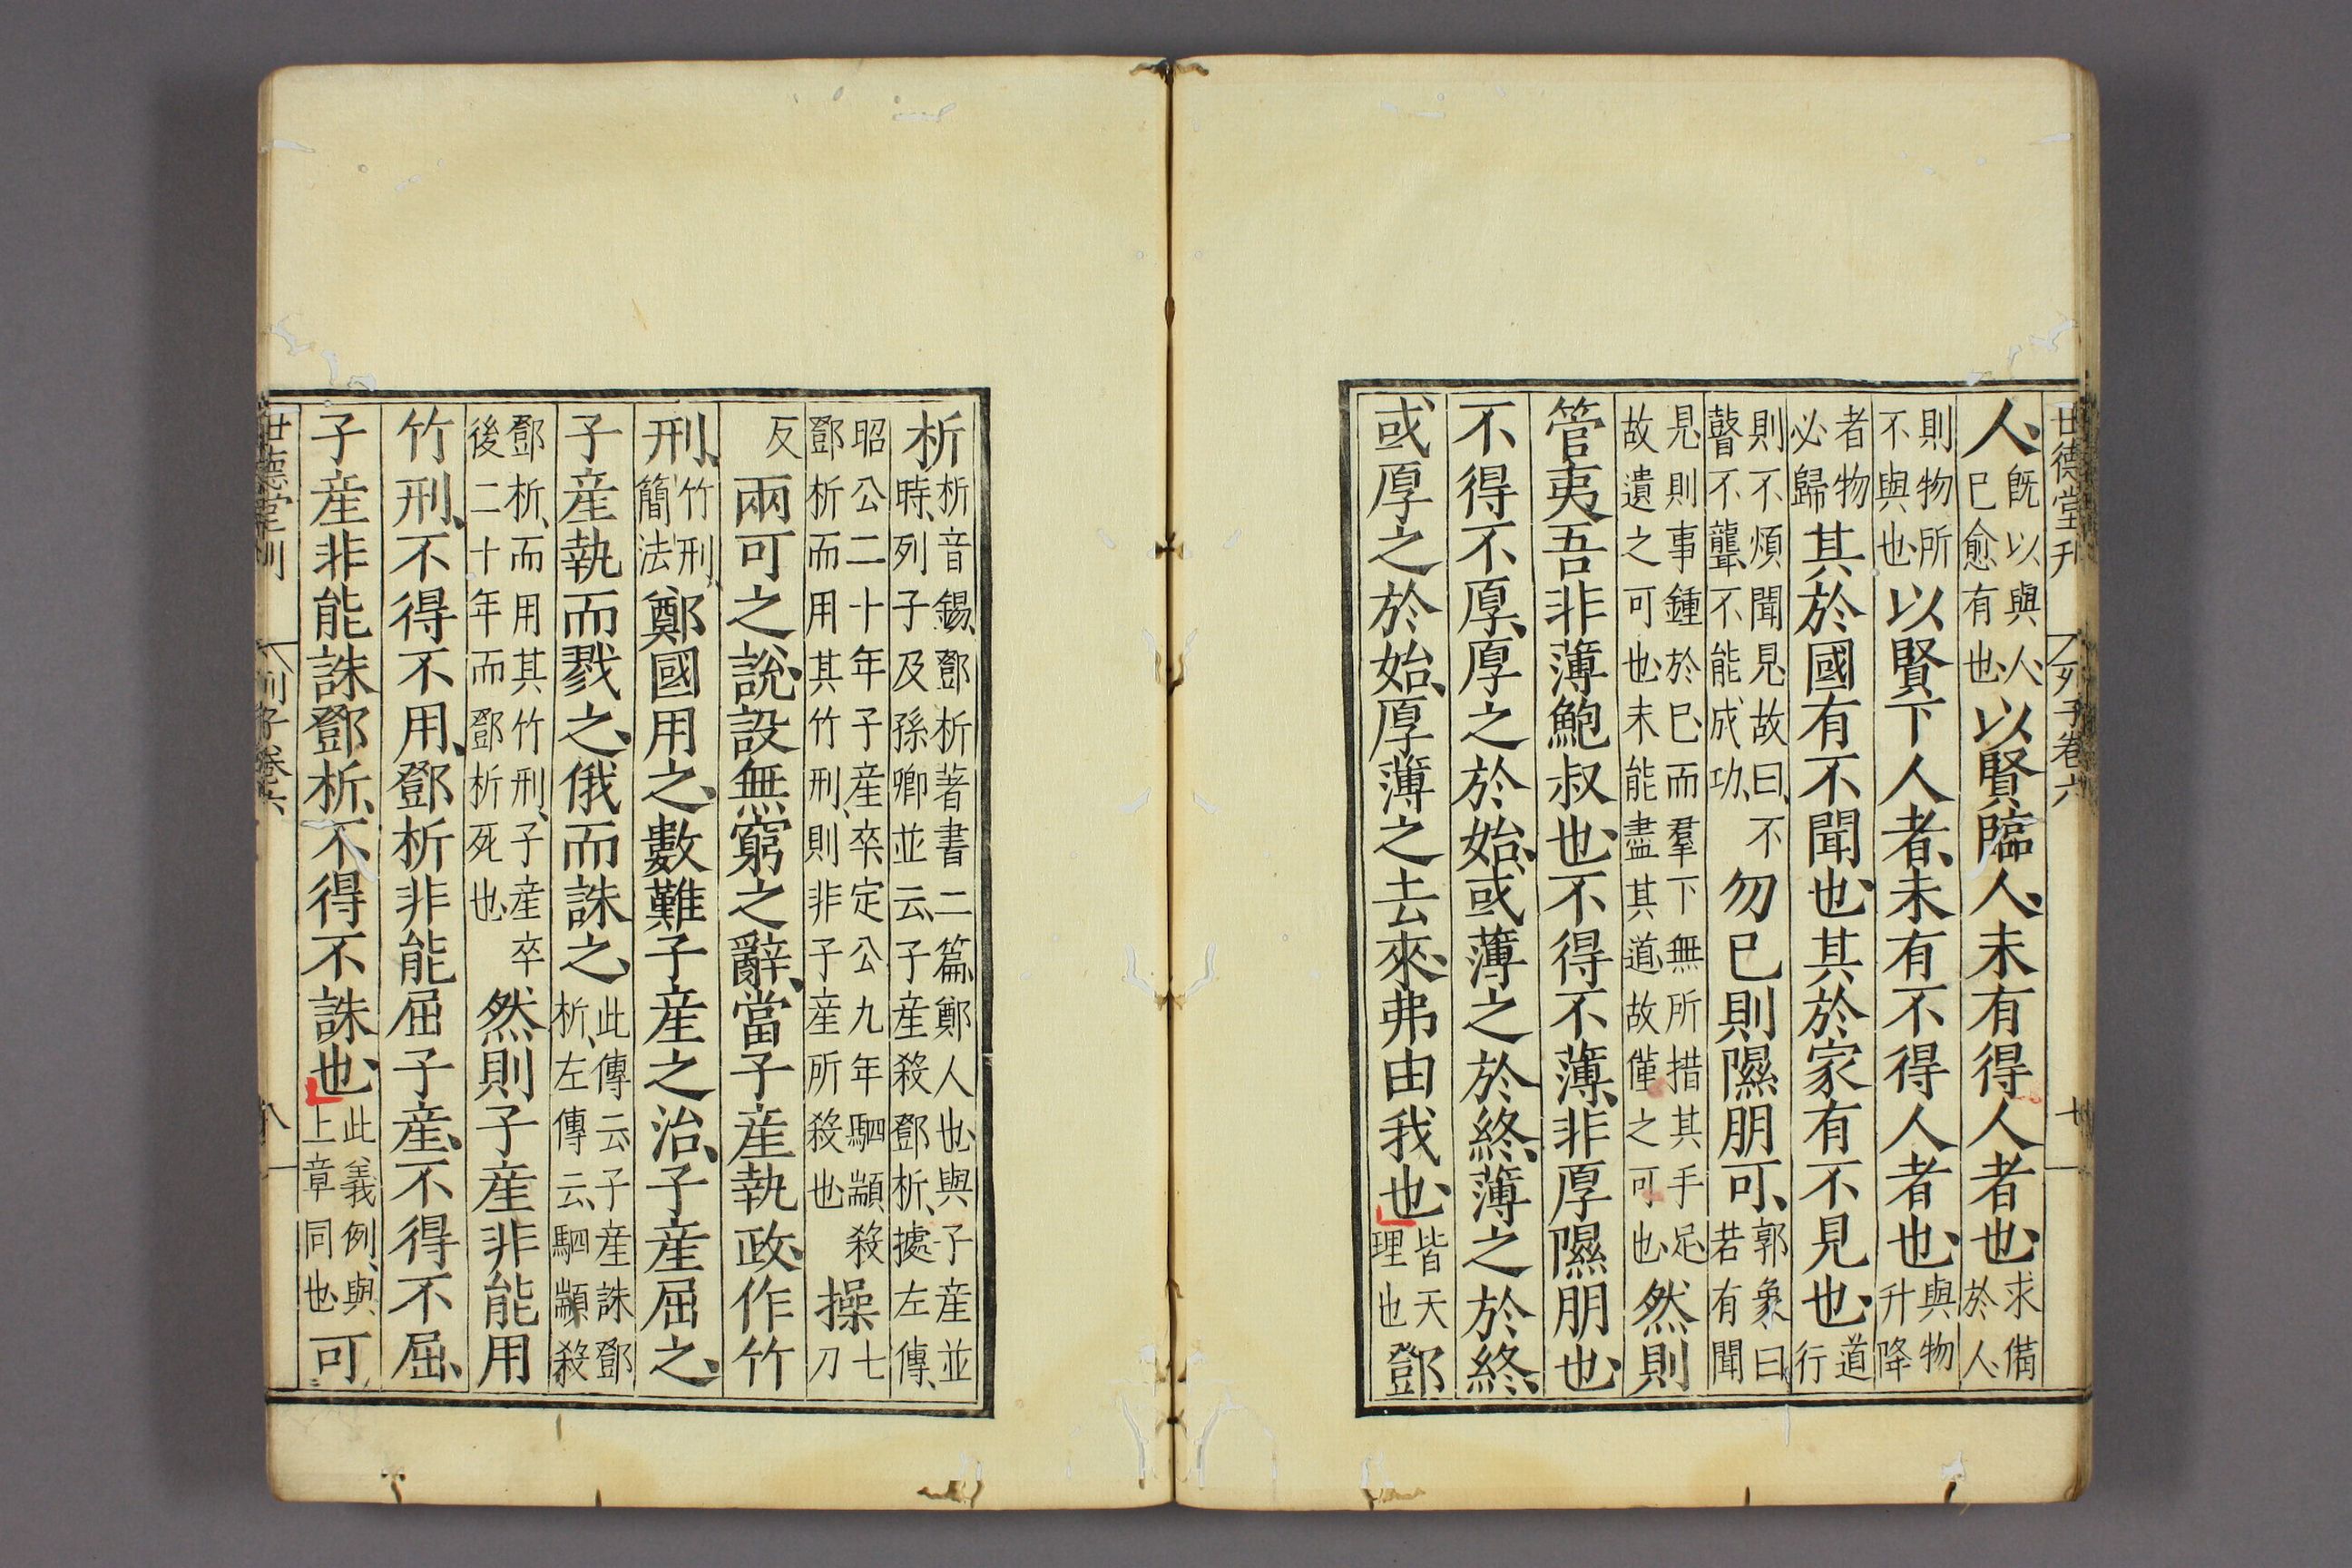 世德堂刊 列子卷六 七
人、既以與人、巳愈有也、以賢臨人、未有得人者也、求備於人、
則物所不與也、以賢下人者、未有不得人者也、與物升降
者物必歸其於國有不聞也、其於家有不見也、道行
則不煩聞見、故曰、不瞽不聾、不能成功、勿巳則隰朋可、郭象曰若有聞
見則事鍾於巳而羣下無所措其手足故遺之可也未能盡其道、故僅之可也、然則
管夷吾非薄鮑叔也、不得不薄、非厚隰朋也、
不得不厚、厚之於始、或薄之於終、薄之於終、
或厚之於始、厚薄之去來、弗由我也、皆天理也鄧
析析音錫、鄧析著書二篇、鄭人也、與子產並時、列子及孫卿並云、子產殺鄧析、據左傳、
昭公二十年子產卒定公九年駟顓殺鄧析而用其竹刑、則非子產所殺也、操七刀
反兩可之說、設無窮之辭、當子產執政、作竹
刑、竹刑、簡法鄭國用之、數難子產之治、子產屈之、
子產執而戮之、俄而誅之、此傳云子產誅鄧析、左傳云、駟顓殺
鄧析、而用其竹刑、子產卒後二十年而鄧析死也、然則子產非能用
竹刑、不得不用、鄧析非能屈子產、不得不屈、
子產非能誅鄧析、不得不誅也、此義例、與上章同也、可
世德堂刊 列子卷六 八